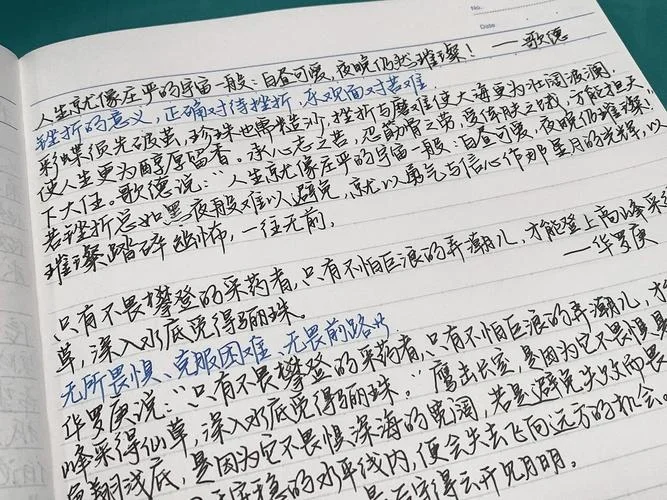 No.
Date
人生就像庄严的宇宙一般:白昼可爱,夜晚仍然璀璨! ——歌德
挫折的意义,正确对待挫折,乐观面对苦难
彩蝶须先破茧,珍珠也需粗沙,挫折与磨难使大海更为壮阔波澜,
使人生更为醇厚留香。承心志之苦,忍筋骨之劳,受体肤之饿,才能担天
下大任。歌德说:"人生就像庄严的宇宙一般:白昼可爱,夜晚仍难璀璨"
若挫折总如黑夜般难以避免,就以勇气与信心作那星月的光辉,以
璀璨踏碎幽怖,一往无前。
只有不畏攀登的采药者,只有不怕巨浪的弄潮儿,才能登上高峰采
草,深入水底觅得骊珠。 ——华罗庚
无所畏惧、克服困难、无畏前路
华罗庚说:"只有不畏攀登的采药者,只有不怕巨浪的弄潮儿,才
峰采得仙草,深入水底觅得骊珠。"鹰击长空,是因为它不畏惧
翔浅底,是因为它不畏惧深海的宽阔,若是避免失败而畏
稳的水平线内,便会失去飞向远方的机会。
得云开见月明。